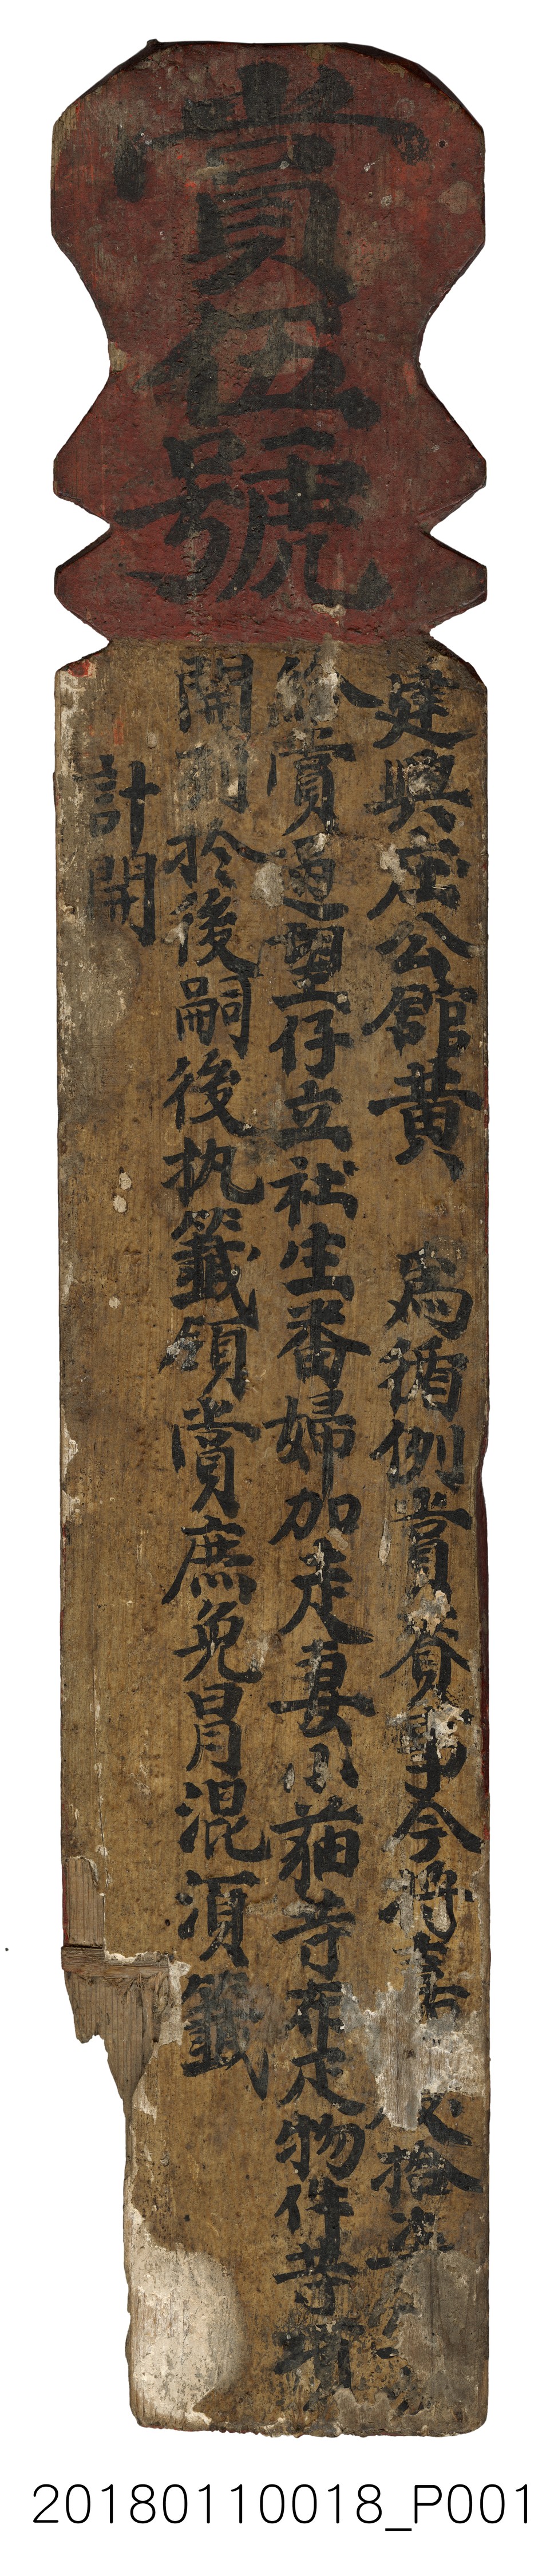 賞伍號
建興庄公館黃 為循例賞賚事今將嘉 拾
給賞過望仔立社生番婦加走妻小茹寺布疋物件等項
開列於後嗣後执籤領賞庶免冒混須籤
計開
20180110018_P001